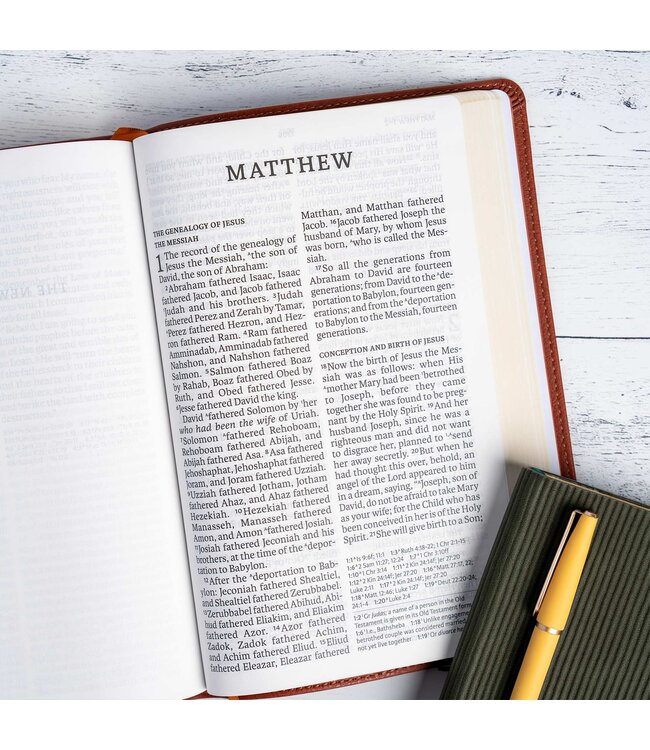 MATTHEW
THE GENEALOGY OF JESUS
THE MESSIAH
1 The record of the genealogy of
Jesus the Messiah, ᴬthe son of
David, the son of Abraham:
2 Abraham fathered Isaac, Isaac
fathered Jacob, and Jacob fathered
Judah and his brothers. 3 Judah
fathered Perez and Zerah by Tamar,
Perez fathered Hezron, and Hez-
ron fathered Ram. 4 Ram fathered
Amminadab, Amminadab fathered
Nahshon, and Nahshon fathered
Salmon. 5 Salmon fathered Boaz
by Rahab, Boaz fathered Obed by
Ruth, and Obed fathered Jesse.
6 Jesse fathered David the king.
David ᴬfathered Solomon by ¹her
who had been the wife of Uriah.
7 Solomon ᴬfathered Rehoboam,
Rehoboam fathered Abijah, and
Abijah fathered Asa. 8 Asa fathered
Jehoshaphat, Jehoshaphat fathered
Joram, and Joram fathered Uzziah.
9 Uzziah fathered Jotham, Jotham
fathered Ahaz, and Ahaz fathered
Hezekiah. 10 Hezekiah fathered
Manasseh, Manasseh fathered
Amon, and Amon ᴬfathered Josiah.
11 Josiah fathered Jeconiah and his
brothers, at the time of the ᴬdepor-
tation to Babylon.
12 After the ᴬdeportation to Bab-
ylon: Jeconiah fathered Shealtiel,
and Shealtiel fathered Zerubbabel.
13 Zerubbabel fathered Abihud, Abi-
hud fathered Eliakim, and Eliakim
fathered Azor. 14 Azor fathered
Zadok, Zadok fathered Achim,
and Achim fathered Eliud. 15 Eliud
fathered Eleazar, Eleazar fathered
Matthan, and Matthan fathered
Jacob. 16 Jacob fathered Joseph the
husband of Mary, by whom Jesus
was born, ᴬwho is called the Mes-
siah.
17 So all the generations from
Abraham to David are fourteen
generations; from David to the ᴬde-
portation to Babylon, fourteen gen-
erations; and from the ᴬdeportation
to Babylon to the Messiah, fourteen
generations.
CONCEPTION AND BIRTH OF JESUS
18 Now the birth of Jesus the Mes-
siah was as follows: when His
ᴬmother Mary had been ¹betrothed
to Joseph, before they came
together she was found to be preg-
nant by the Holy Spirit. 19 And her
husband Joseph, since he was a
righteous man and did not want
to disgrace her, planned to ¹ᴬsend
her away secretly. 20 But when he
had thought this over, behold, an
angel of the Lord appeared to him
in a dream, saying, "ᴬJoseph, son of
David, do not be afraid to take Mary
as your wife; for the Child who has
been conceived in her is of the Holy
Spirit. 21 She will give birth to a Son;
1:1 ᴬIs 9:6f; 11:1 1:3 ᴬRuth 4:18-22; 1 Chr 2:1-15
1:6 ᴬ2 Sam 11:27; 12:24 1:7 ᴬ1 Chr 3:10ff
1:10 ᴬ1 Chr 3:14 1:11 ᴬ2 Kin 24:14f; Jer 27:20
1:12 ᴬ2 Kin 24:14f; Jer 27:20 1:16 ᴬMatt 27:17, 22;
Luke 2:11 1:17 ᴬ2 Kin 24:14f; Jer 27:20
1:18 ᴬMatt 12:46; Luke 1:27 1:19 ᴬDeut 22:20-24;
24:1-4 1:20 ᴬLuke 2:4
1:2 ¹Gr Judas; a name of a person in the Old
Testament is given in its Old Testament form
1:6 ¹I.e., Bathsheba 1:18 ¹Unlike engagement,
betrothed couple was considered married,
not yet living together 1:19 ¹Or divorce her
THE NEW